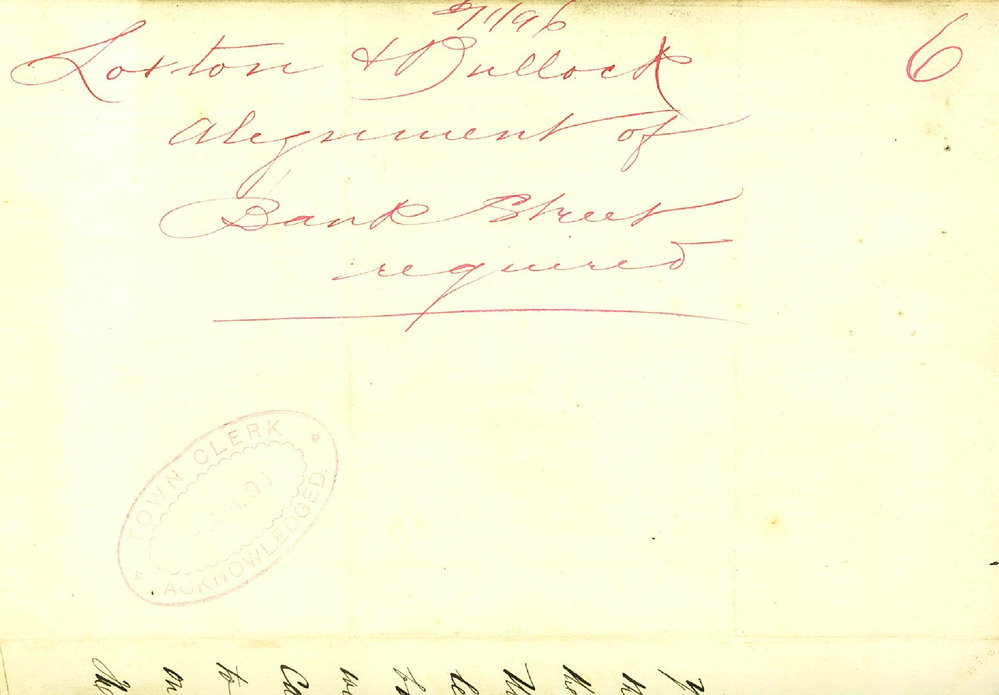 7/1/96
6
Loxton & Bullock
Alignment of
Bank Street
required
TOWN CLERK
ACKNOWLEDGED.